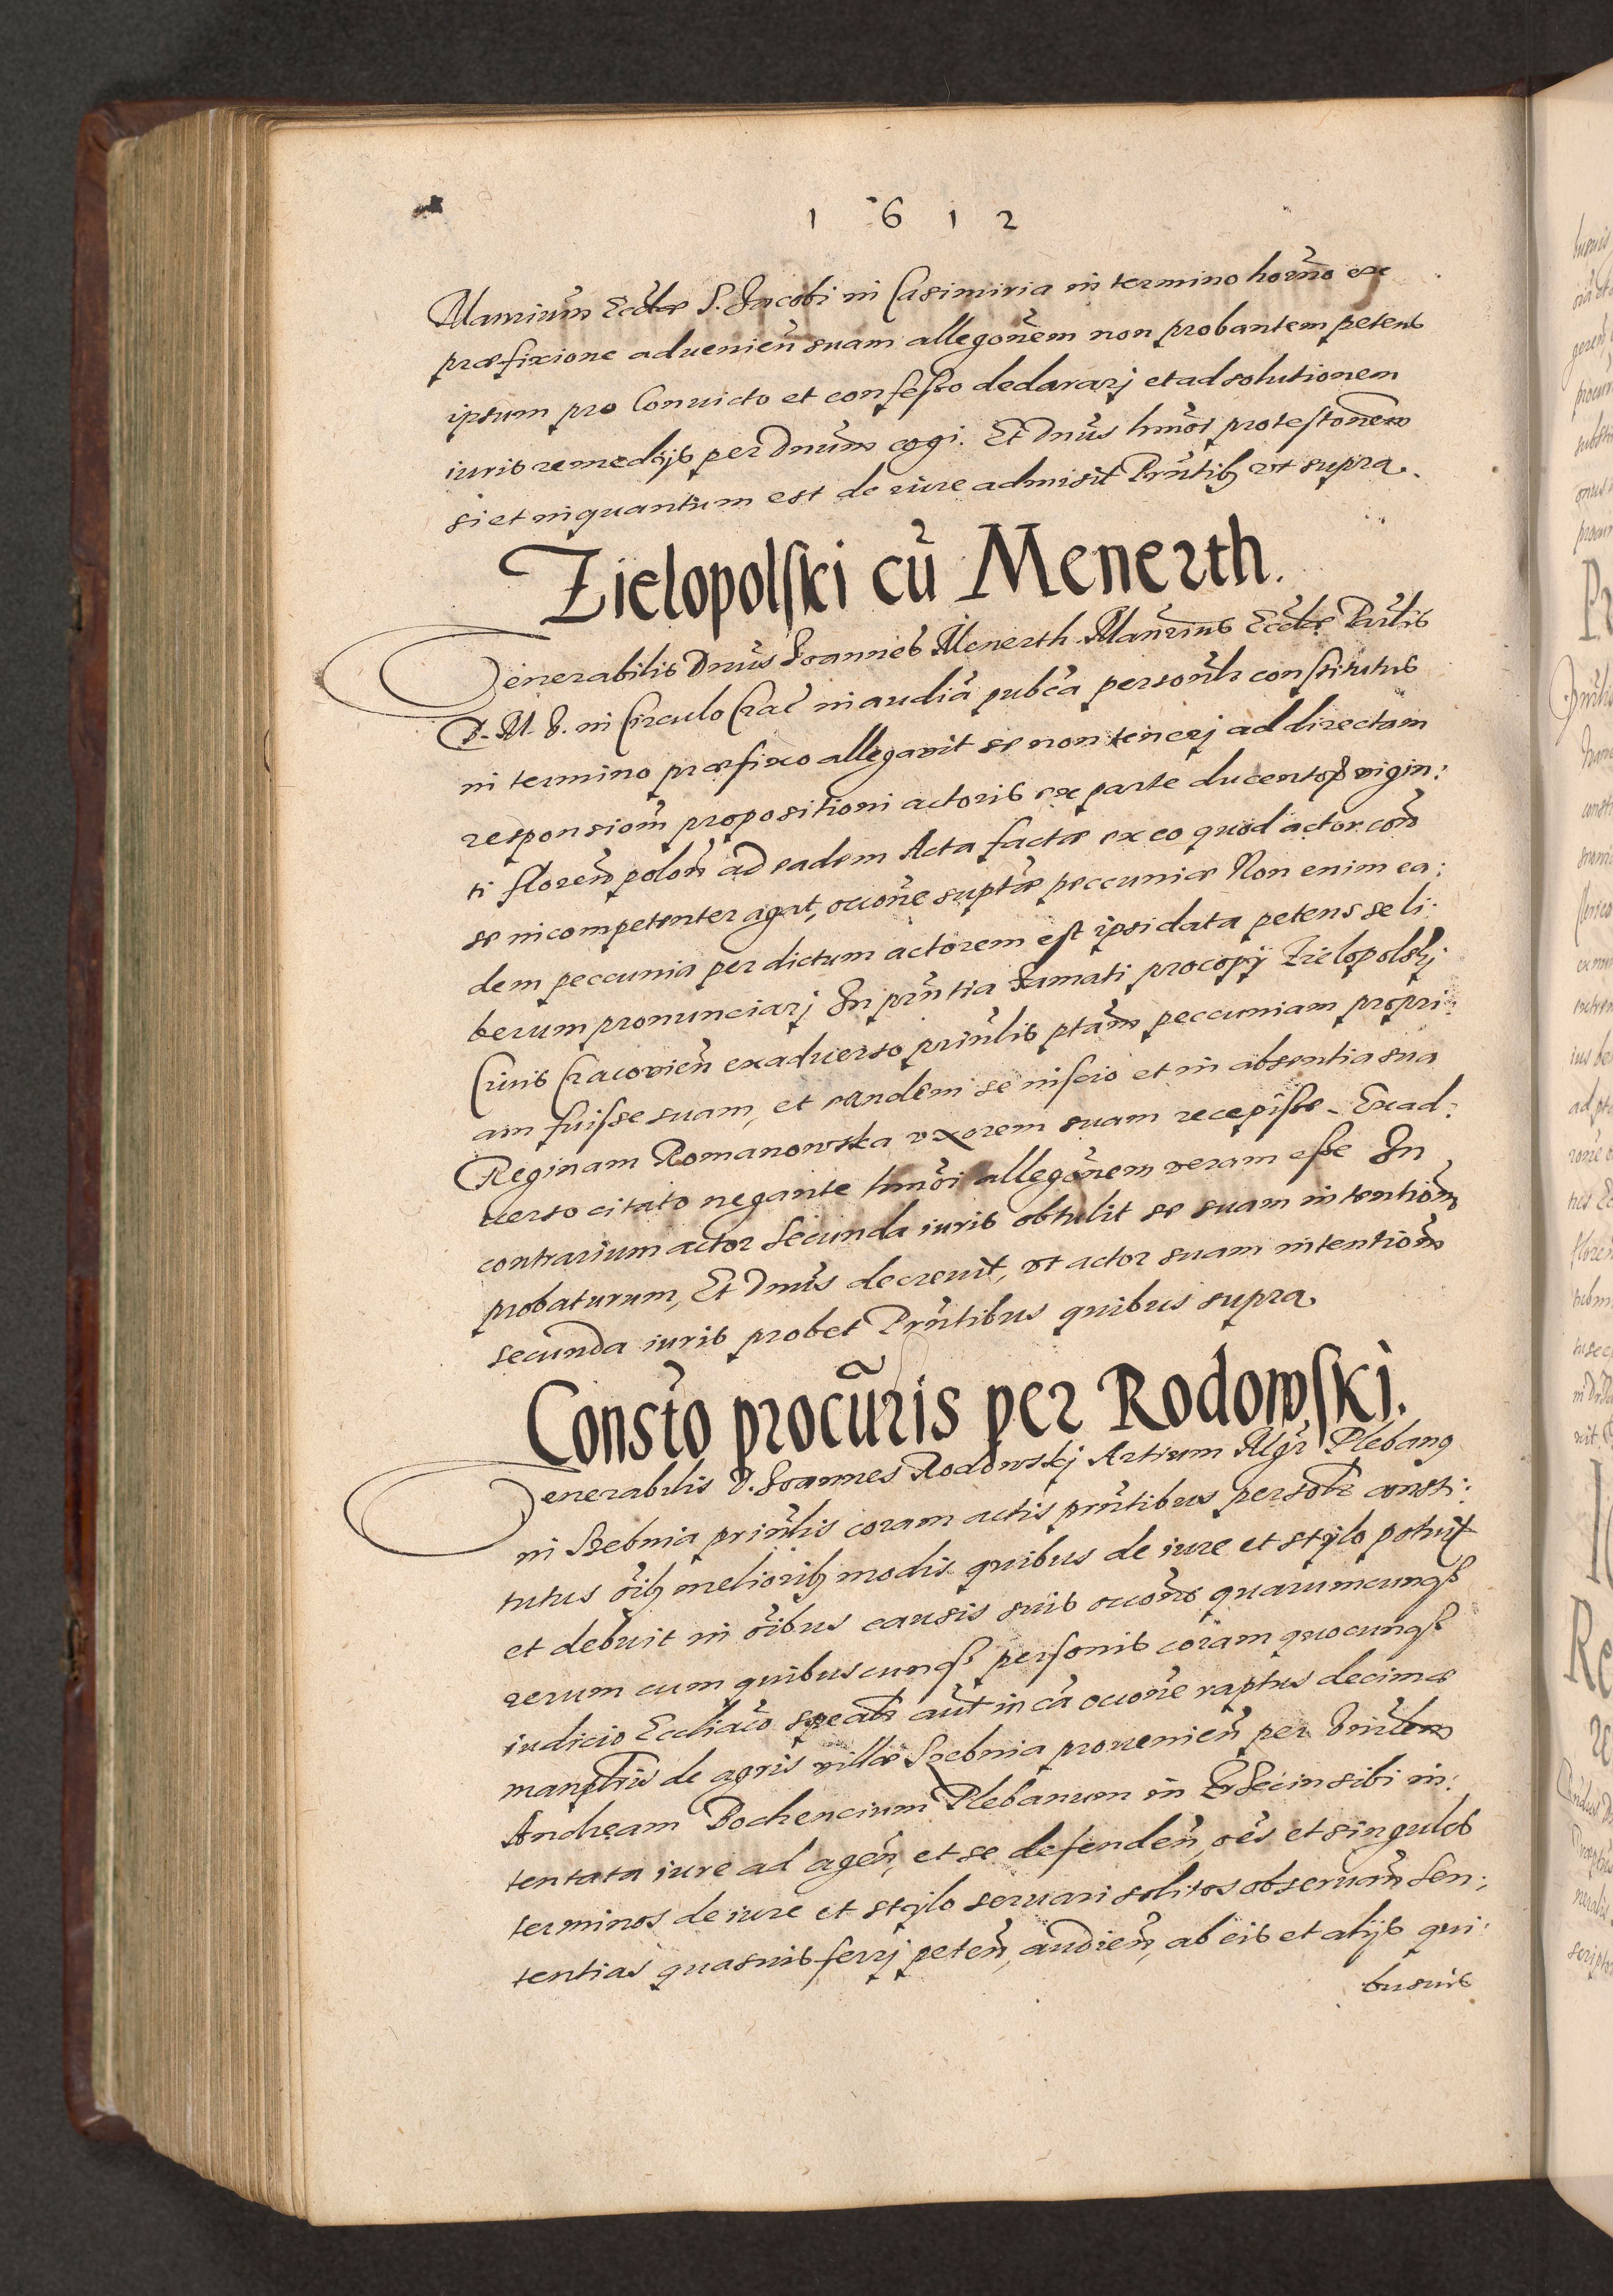 1 6 1 2
Manrium Ecclae S. Jacobi in Casimiria in termino horno ex
praefixione advenien suam allegonem non probantem petens
ipsum pro Convicto et confesso declararj et ad solutionem
iuris remedijs per Dnum cogi. Et Dnus hmoi protestonem
si et in quantum est de iure admisit Prntib vt supra.
Zielopolski cũ Menerth.
Venerabilis Dnus Joannes Menerth Manrius Ecclae
B. M. V. in Circulo Crac in audia pubca personlr constitutus
in termino praefixo allegavit se non tenerj ad directam
responsiom propositioni actoris ex parte ducentor vigin:
ti floren polon ad eadem Acta factae ex eo quod actor con
se incompetenter agat, occone suptae peccuniae Non enim ea:
dem peccunia per dictum actorem est ipsi data petens se li:
berum pronunciarj In prntia Famati procopij Zielopolskj
Civis Cracovien ex adverso prinlis ptam peccuniam propri:
am fuisse suam, et eandem se inscio et in absentia sua
Reginam Romanowska vxorem suam recepisse. Ex ad:
verso citato negante hmoi allegonem veram esse In
contrarium actor secunda iuris obtulit se suam intentiom
probaturum, Et Dnus decrevit, vt actor suam intentiom
secunda iuris probet Prntibus quibus supra
Consto procuris per Rodowski.
Venerabilis D. Joannes Rodowskj Artium Mgr Plebang
in Szebnia prinlis coram actis prntibus personlr consti:
tutus oib meliorib modis quibus de iure et stylo potuit
et debuit in oibus causis suis occone quarumcunq
rerum cum quibuscunq personis coram quocunq
iudicio Eccliaco spealr aut in ca occone raptus decimae
maniplris de agris villae Szebnia provenien per
Andream Bochencium Plebanum in sibi in:
tentata iure ad agen, et se defenden, oes et singulos
terminos de iure et stylo servari solitos observan Sen:
tentias quasuis ferrj peten, audien, ab eis et alijs qui:
busuis